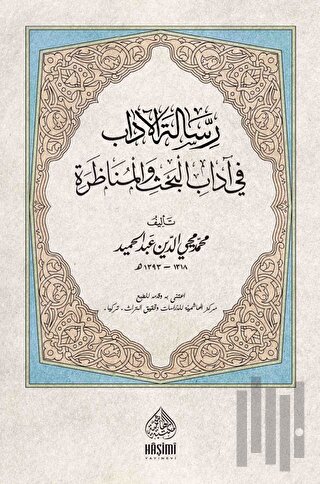 رِسَالَةُ الآدَاب
فِي آدَابِ الْبَحْثِ وَالْمُنَاظَرَة
تَأْلِيفُ
مُحَمَّد مُحْيِي الدِّين عَبْد الحَمِيد
١٣١٨ - ١٣٩٣ هـ
اعتنى به وقدمه للطبع
مركز الهاشمية للدراسات وتحقيق التراث - تركيا.
HÂŞİMİ
YAYINEVİ